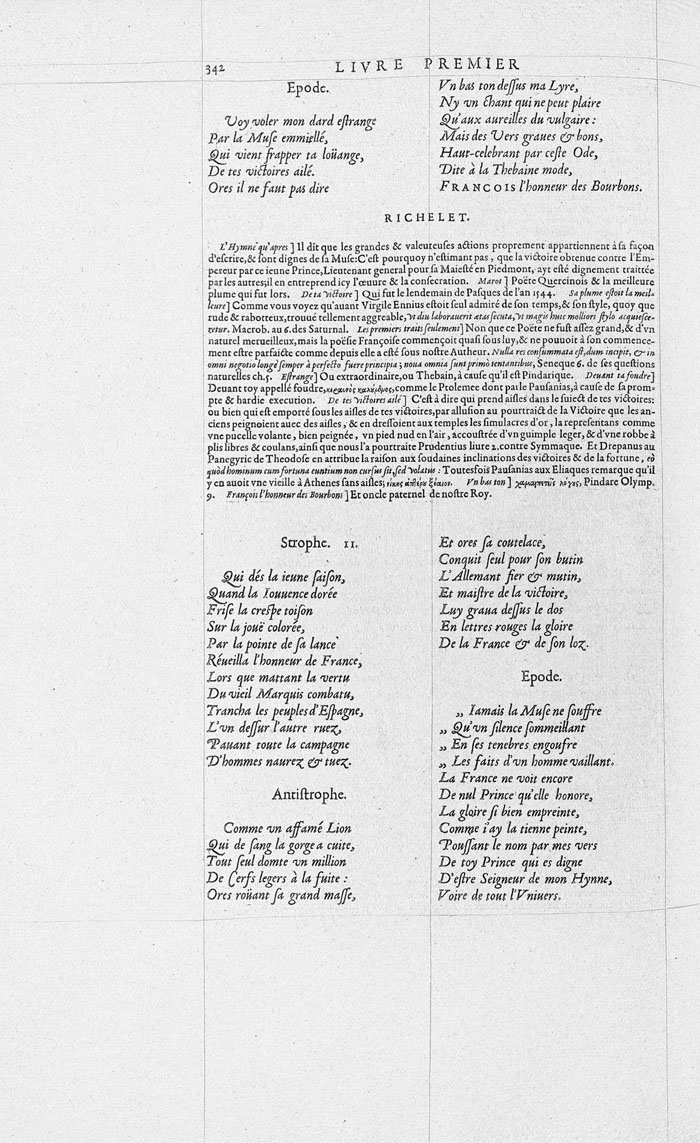 342
LIVRE PREMIER
Epode.
Voy voler mon dard eſtrange
Par la Muſe emmiellé,
Qui vient frapper ta loüange,
De tes victoires ailé.
Ores il ne faut pas dire
Vn bas ton deſſus ma Lyre,
Ny vn chant qui ne peut plaire
Qu'aux aureilles du vulgaire:
Mais des Vers graues & bons,
Haut-celebrant par ceſte Ode,
Dite à la Thebaine mode,
FRANCOIS l'honneur des Bourbons.
RICHELET.
L'Hymne qu'apres ] Il dit que les grandes & valeureuſes actions proprement appartiennent à ſa façon
d'eſcrire,& ſont dignes de ſa Muſe:C'eſt pourquoy n'eſtimant pas, que la victoire obtenue contre l'Em-
pereur par ce ieune Prince,Lieutenant general pour ſa Maieſté en Piedmont, ayt eſté dignement traittée
par les autres,il en entreprend icy l'œuure & la conſecration. Marot ] Poëte Quercinois & la meilleure
plume qui fut lors. De ta victoire ] Qui fut le lendemain de Paſques de l'an 1544. Sa plume eſtoit la meil-
leure] Comme vous voyez qu'auant Virgile Ennius eſtoit ſeul admiré de ſon temps,& ſon ſtyle, quoy que
rude & rabotteux,trouué tellement aggreable,vt diu laborauerit ætas ſecuta,vt magis huic molliori ſtylo acquieſce-
retur. Macrob. au 6.des Saturnal. Les premiers traits ſeulement] Non que ce Poëte ne fuſt aſſez grand,& d'vn
naturel merueilleux,mais la poëſie Françoiſe commençoit quaſi ſous luy,& ne pouuoit à ſon commence-
ment eſtre parfaicte comme depuis elle a eſté ſous noſtre Autheur. Nulla res conſummata eſt,dum incipit, & in
omni negotio longè ſemper à perfecto fuere principia ; noua omnia ſunt primò tentantibus, Seneque 6. de ſes queſtions
naturelles ch.5. Eſtrange] Ou extraordinaire,ou Thebain,à cauſe qu'il eſt Pindarique. Deuant ta foudre]
Deuant toy appellé foudre, comme le Ptolemee dont parle Pauſanias,à cauſe de ſa prom-
pte & hardie execution. De tes victoires ailé ] C'eſt à dire qui prend aiſles dans le ſuiect de tes victoires:
ou bien qui eſt emporté ſous les aiſles de tes victoires,par alluſion au pourtraict de la Victoire que les an-
ciens peignoient auec des aiſles, & en dreſſoient aux temples les ſimulacres d'or, la repreſentans comme
vne pucelle volante, bien peignée, vn pied nud en l'air, accouſtrée d'vn guimple leger, & d'vne robbe à
plis libres & coulans,ainſi que nous l'a pourtraite Prudentius liure 2.contre Symmaque. Et Drepanus au
Panegyric de Theodoſe en attribue la raiſon aux ſoudaines inclinations des victoires & de la fortune, eò
quòd hominum cum fortuna euntium non curſus ſit,ſed volatus : Toutesfois Pauſanias aux Eliaques remarque qu'il
y en auoit vne vieille à Athenes sans aiſles; Vn bas ton ] Pindare Olymp.
9. François l'honneur des Bourbons ] Et oncle paternel de noſtre Roy.
Strophe. 11.
Qui dés la ieune ſaiſon,
Quand la Iouuence dorée
Friſe la creſpe toiſon
Sur la jouë colorée,
Par la pointe de ſa lance
Réueilla l'honneur de France,
Lors que mattant la vertu
Du vieil Marquis combatu,
Trancha les peuples d'Eſpagne,
L'vn deſſur l'autre ruez,
Pauant toute la campagne
D'hommes naurez & tuez.
Antiſtrophe.
Comme vn affamé Lion
Qui de ſang la gorge a cuite,
Tout ſeul domte vn million
De Cerfs legers à la fuite :
Ores roüant ſa grand maſſe,
Et ores ſa coutelace,
Conquit ſeul pour ſon butin
L'Allemant fier & mutin,
Et maiſtre de la victoire,
Luy graua deſſus le dos
En lettres rouges la gloire
De la France & de ſon loz.
Epode.
„ Iamais la Muſe ne ſouffre
„ Qu'vn ſilence ſommeillant
„ En ſes tenebres engoufre
„ Les faits d'vn homme vaillant.
La France ne voit encore
De nul Prince qu'elle honore,
La gloire ſi bien empreinte,
Comme i'ay la tienne peinte,
Pouſſant le nom par mes vers
De toy Prince qui es digne
D'eſtre Seigneur de mon Hynne,
Voire de tout l'Vniuers.